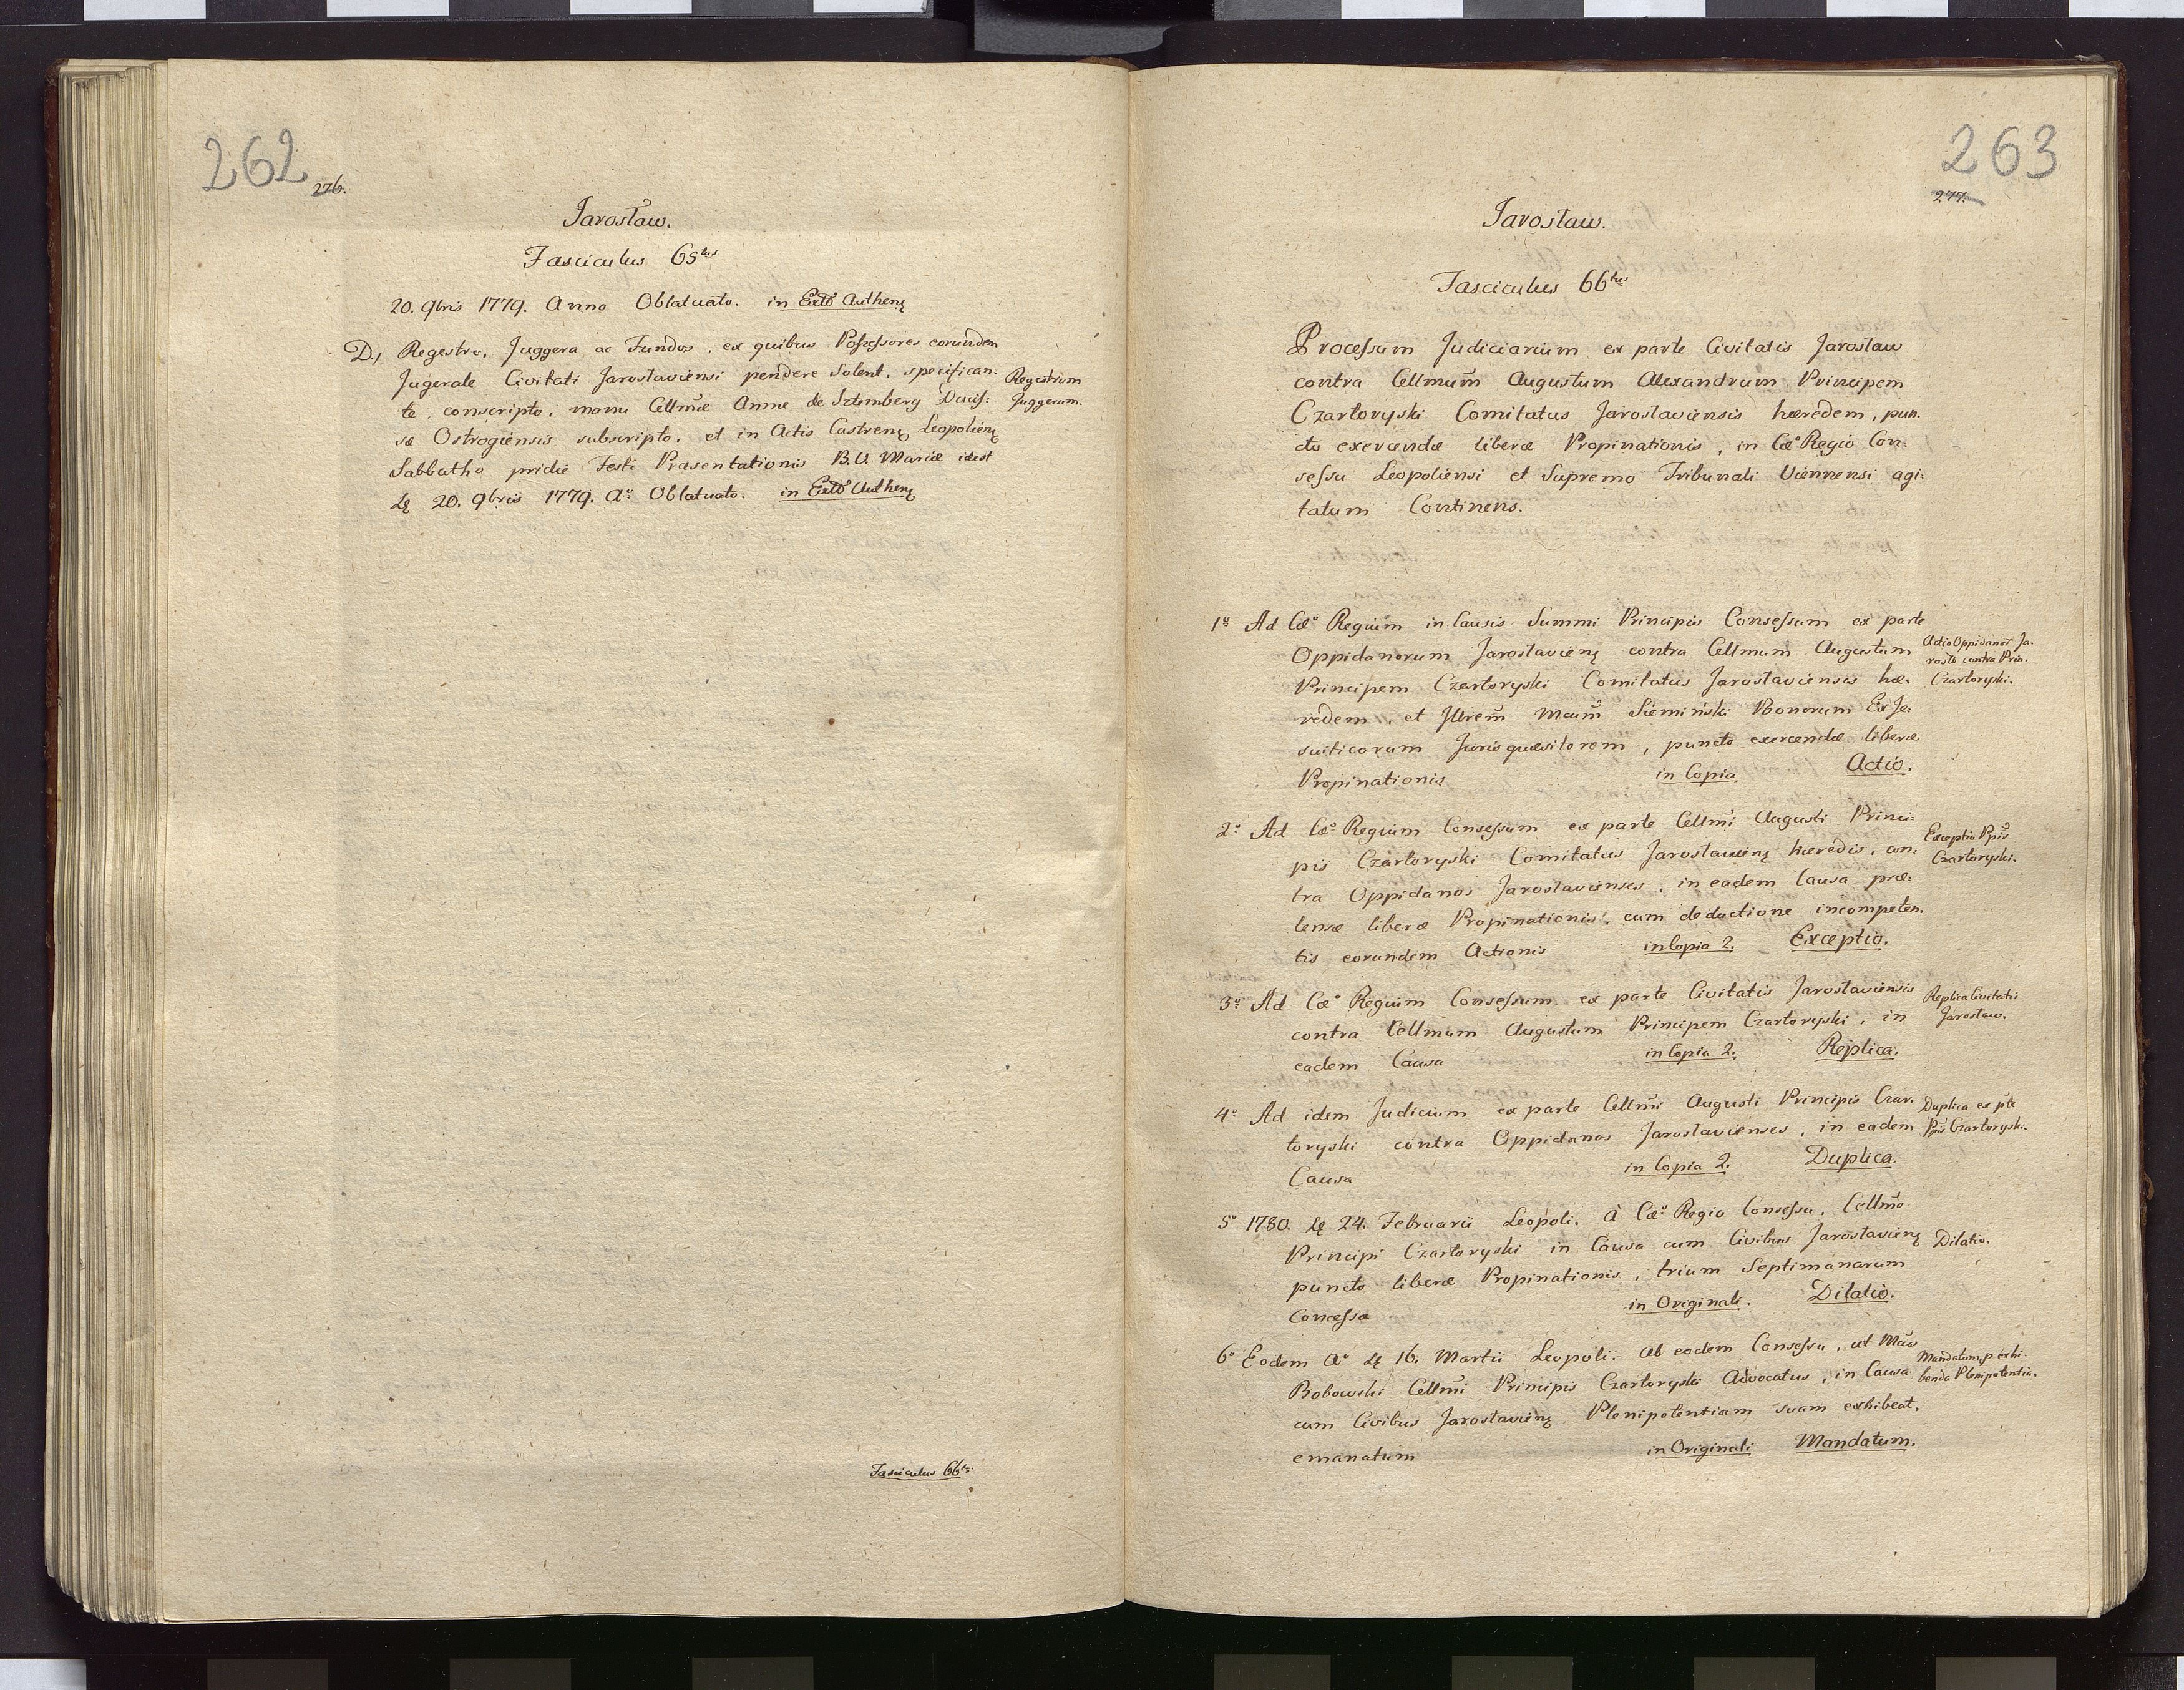 262
276.
Jarosław.
Fasciculus 65tus
20. 9bris 1779. Anno Oblatuato. in Extto Authenq
D., Regestro, Juggera ac Fundos, ex quibus Possessores eorundem
Jugerale Civitati Jaroslaviensi pendere solent, specifican-
te, conscripto, manu Cellmæ Annæ de Sztemberg Ducis-
sæ Ostrogiensis subscripto, et in Actis Castrenq Leopolienq
Sabbatho pridie Festi Præsentationis B.V. Mariæ idest
20. 9bris 1779. Ao Oblatuato. in Extto Authenq
Regestrum
Juggerum.
Fasciculus 66tus
263
277.
Jarosław.
Fasciculus 66tus
Processum Judiciarium ex parte Civitatis Jarosław
contra Cellmum Augustum Alexandrum Principem
Czartoryski Comitatus Jaroslaviensis hæredem, pun-
cto exercendæ liberæ Propinationis, in Cæo Regio Con-
sessu Leopoliensi et Supremo Tribunali Viennensi agi-
tatum Continens.
1o Ad Cæo Regium in Causis Summi Principis Consessum ex parte
Oppidanorum Jaroslavienq contra Cellmum Augustum
Principem Czartoryski Comitatus Jaroslaviensis hæ-
redem, et Jllrem Mcum Siemiński Bonorum ExJe-
suiticorum Jurisquæsitorem, puncto exercendæ liberæ
Propinationis in Copia Actio.
Actio Oppidanor Ja-
rosł: contra Prin.
Czartoryski.
2o Ad Cæo Regium Consessum ex parte Cellmi Augusti Princi-
pis Czartoryski Comitatus Jaroslavienq hæredis, con-
tra Oppidanos Jaroslavienses, in eadem Causa præ-
tensæ liberæ Propinationis, cum deductione incompeten-
tis eorundem Actionis in Copia 2. Exceptio.
Exceptio Ppis
Czartoryski.
3o Ad Cæo Regium Consessum ex parte Civitatis Jaroslaviensis
contra Cellmum Augustum Principem Czartoryski, in
eadem Causa in Copia 2. Replica.
Replica Civitatis
Jarosław.
4o Ad idem Judicium ex parte Cellmi Augusti Principis Czar-
toryski contra Oppidanos Jaroslavienses, in eadem
Causa in Copia 2. Duplica.
Duplica ex pte
Ppis Czartoryski.
5o 1780. 24. Februarii Leopoli. à Cæo Regio Consessu, Cellmo
Principi Czartoryski in Causa cum Civibus Jaroslavienq
puncto liberæ Propinationis, trium Septimanarum
Concessa in Originali. Dilatio.
Dilatio.
6o Eodem Ao 16. Martii Leopoli. ab eodem Consessu, ut Mcus
Bobowski Cellmi Principis Czartoryski Advocatus, in Causa
cum Civibus Jaroslavienq Plenipotentiam suam exhibeat,
emanatum in Originali Mandatum.
Mandatum p exhi-
benda Plenipotentia.